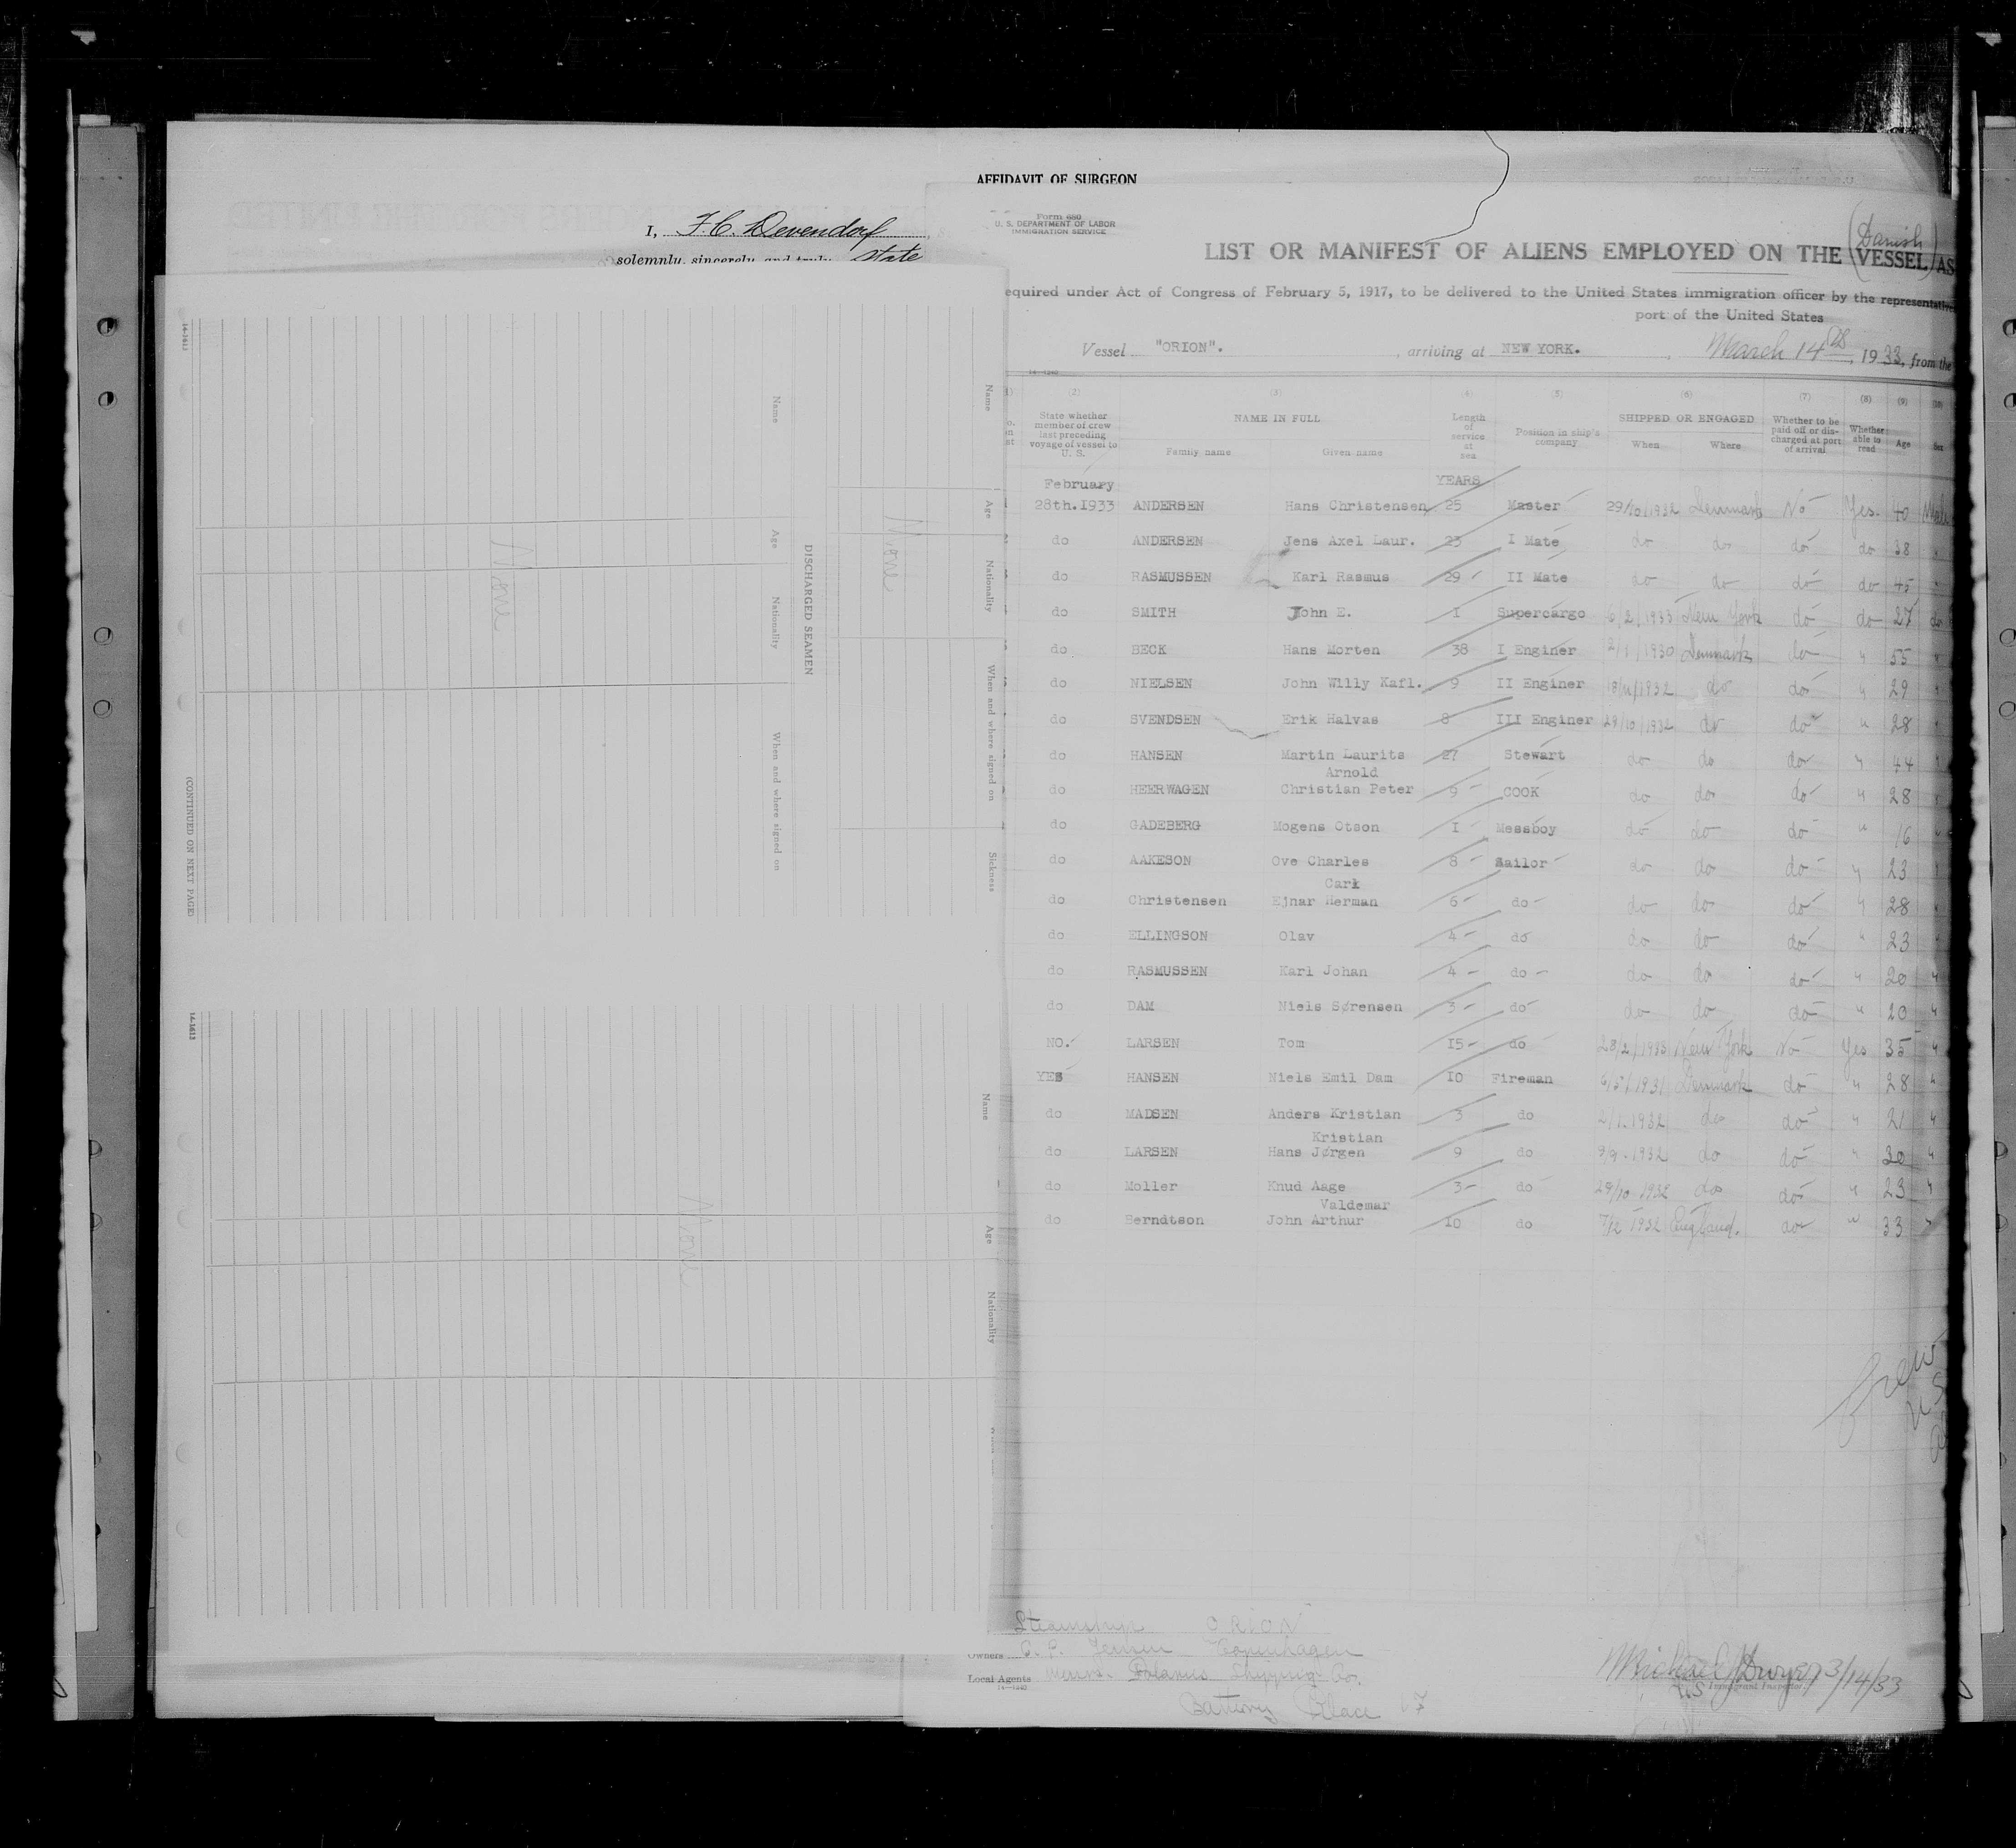 AFFIDAVIT OF SURGEON
I, F. C. Devendorf
solemnly, sincerely, and truly state
14-1613
Name
Age
Nationality
When and where signed on
Sickness
None
DISCHARGED SEAMEN
Name
Age
Nationality
When and where signed on
None
(CONTINUED ON NEXT PAGE)
14-1613
Name
Age
Nationality
None
Form 680
U. S. DEPARTMENT OF LABOR
IMMIGRATION SERVICE
LIST OR MANIFEST OF ALIENS EMPLOYED ON THE (Danish VESSEL) AS
equired under Act of Congress of February 5, 1917, to be delivered to the United States immigration officer by the representative
port of the United States
Vessel "ORION". , arriving at NEW YORK. , March 14th, 1933, from the
14-1240
(2) (3) (4) (5) (6) (7) (8) (9) (10)
State whether member of crew last preceding voyage of vessel to U. S. NAME IN FULL Family name Given name Length of service at sea Position in ship's company SHIPPED OR ENGAGED When Where Whether to be paid off or discharged at port of arrival Whether able to read Age Sex
February YEARS
28th.1933 ANDERSEN Hans Christensen 25 Master 29/10/1932 Denmark No Yes. 40 Male
do ANDERSEN Jens Axel Laur. 23 I Mate do do do do 38 "
do RASMUSSEN Karl Rasmus 29 II Mate do do do do 45 "
do SMITH John E. I Supercargo 6/2/1933 New York do do 27 do
do BECK Hans Morten 38 I Enginer 2/1/1930 Denmark do " 55 "
do NIELSEN John Willy Kafl. 9 II Enginer 18/11/1932 do do " 29 "
do SVENDSEN Erik Halvas 8 III Enginer 29/10/1932 do do " 28 "
do HANSEN Martin Laurits 27 Stewart do do do " 44 "
Arnold
do HEERWAGEN Christian Peter 9 COOK do do do " 28 "
do GADEBERG Mogens Otson I Messboy do do do " 16 "
do AAKESON Ove Charles 8 Sailor do do do " 23 "
Carl
do Christensen Ejnar Herman 6 do do do do " 28 "
do ELLINGSON Olav 4 do do do do " 23 "
do RASMUSSEN Karl Johan 4 do do do do " 20 "
do DAM Niels Sørensen 3 do do do do " 20 "
NO. LARSEN Tom I5 do 28/2/1933 New York No Yes 35 "
YES HANSEN Niels Emil Dam IO Fireman 6/5/1931 Denmark do " 28 "
do MADSEN Anders Kristian 3 do 2/1.1932 do do " 21 "
Kristian
do LARSEN Hans Jørgen 9 do 9/9-1932 do do " 30 "
do Moller Knud Aage 3 do 29/10 1932 do do " 23 "
Valdemar
do Berndtson John Arthur IO do 7/12 1932 England. do " 33 "
Steamship ORION
Owners C. P. Jensen Copenhagen
Local Agents Messrs. Shipping Co.
14-1240
Battery Place 17
Michael J Dwyer 3/14/33
U.S. Immigrant Inspector